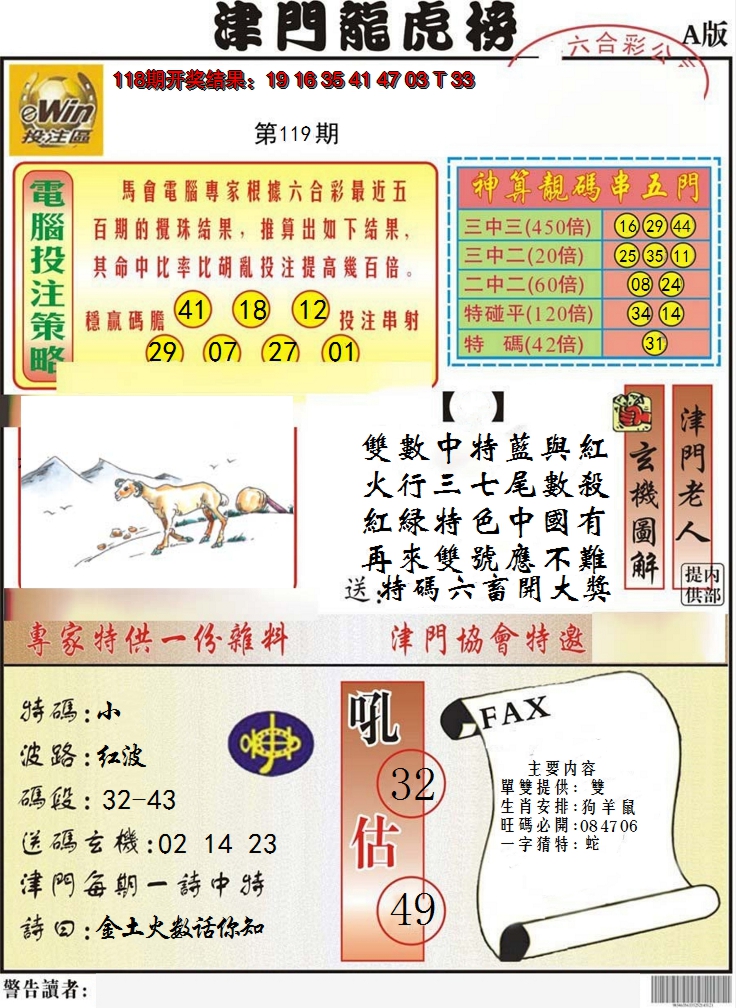 津門龍虎榜
A版
六合彩公
118期开奖结果：19 16 35 41 47 03 T 33
eWin
投注區
第119期
電腦投注策略
馬會電腦專家根據六合彩最近五
百期的攪珠结果，推算出如下结果，
其命中比率比胡亂投注提高幾百倍。
穩贏碼膽 41 18 12 投注串射
29 07 27 01
神算靚碼串五門
三中三(450倍) 16 29 44
三中二(20倍) 25 35 11
二中二(60倍) 08 24
特碰平(120倍) 34 14
特 碼(42倍) 31
【 】
雙數中特藍與紅
火行三七尾數殺
紅綠特色中國有
再來雙號應不難
送:特碼六畜開大獎
玄機圖解
津門老人
内部提供
專家特供一份雜料
津門協會特邀
特碼:小
波路:红波
碼段:32-43
送碼玄機:02 14 23
津門每期一詩中特
詩曰:金土火数话你知
吼
32
估
49
FAX
主要内容
單雙提供：雙
生肖安排:狗羊鼠
旺碼必開:084706
一字猜特:蛇
警告讀者: